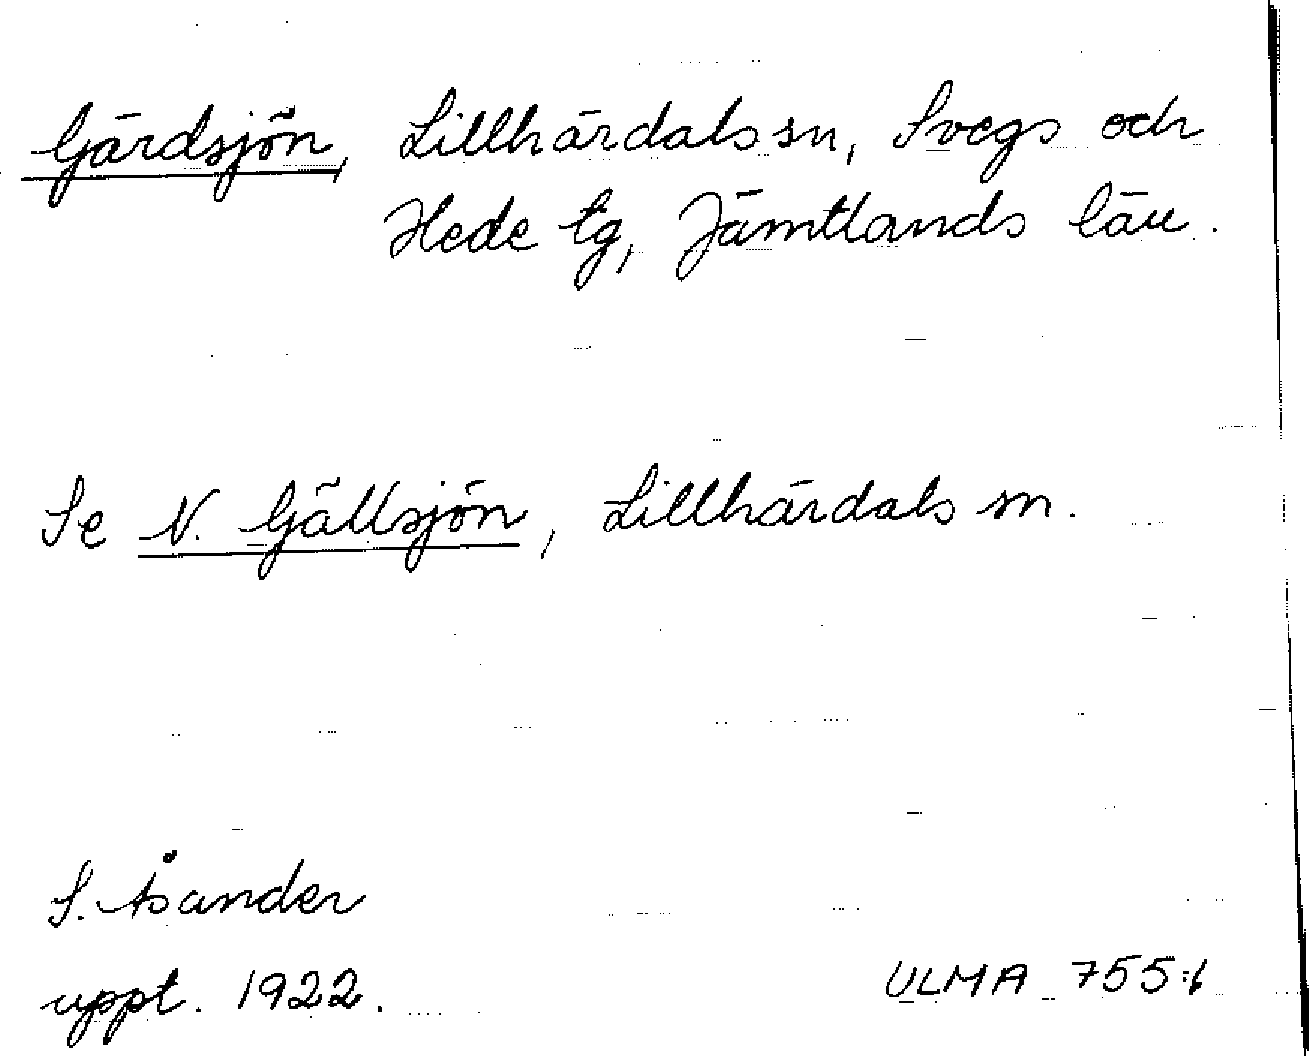 Gärdsjön, Lillhärdals sn, Svegs och
Hede tg, Jämtlands län.
Se N. Gällsjön, Lillhärdals sn.
S. Åsander
uppt. 1922.
ULMA 755:6